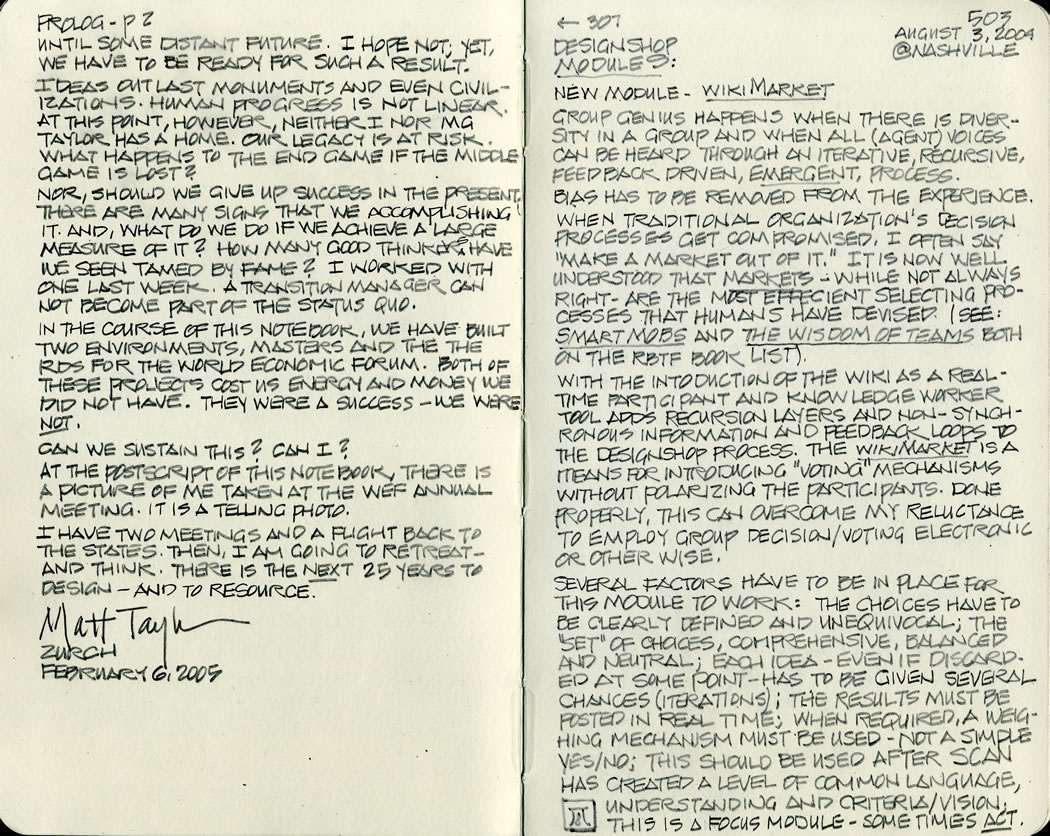 PROLOG - P 2
UNTIL SOME DISTANT FUTURE. I HOPE NOT, YET,
WE HAVE TO BE READY FOR SUCH A RESULT.
IDEAS OUT LAST MONUMENTS AND EVEN CIVIL-
IZATIONS. HUMAN PROGRESS IS NOT LINEAR.
AT THIS POINT, HOWEVER, NEITHER I NOR MG
TAYLOR HAS A HOME. OUR LEGACY IS AT RISK.
WHAT HAPPENS TO THE END GAME IF THE MIDDLE
GAME IS LOST?
NOR, SHOULD WE GIVE UP SUCCESS IN THE PRESENT.
THERE ARE MANY SIGNS THAT WE ACCOMPLISHING
IT. AND, WHAT DO WE DO IF WE ACHIEVE A LARGE
MEASURE OF IT? HOW MANY GOOD THINKERS, HAVE
WE SEEN TAMED BY FAME? I WORKED WITH
ONE LAST WEEK. A TRANSITION MANAGER CAN
NOT BECOME PART OF THE STATUS QUO.
IN THE COURSE OF THIS NOTEBOOK, WE HAVE BUILT
TWO ENVIRONMENTS, MASTERS AND THE THE
RDS FOR THE WORLD ECONOMIC FORUM. BOTH OF
THESE PROJECTS COST US ENERGY AND MONEY WE
DID NOT HAVE. THEY WERE A SUCCESS - WE WERE
NOT.
CAN WE SUSTAIN THIS? CAN I?
AT THE POSTSCRIPT OF THIS NOTE BOOK, THERE IS
A PICTURE OF ME TAKEN AT THE WEF ANNUAL
MEETING. IT IS A TELLING PHOTO.
I HAVE TWO MEETINGS AND A FLIGHT BACK TO
THE STATES. THEN, I AM GOING TO RETREAT -
AND THINK. THERE IS THE NEXT 25 YEARS TO
DESIGN - AND TO RESOURCE.
Matt Taylor
ZURCH
FEBRUARY 6, 2005
← 307
503
AUGUST 3, 2004
@NASHVILLE
DESIGNSHOP
MODULES:
NEW MODULE - WIKI MARKET
GROUP GENIUS HAPPENS WHEN THERE IS DIVER-
SITY IN A GROUP AND WHEN ALL (AGENT) VOICES
CAN BE HEARD THROUGH AN ITERATIVE, RECURSIVE,
FEEDBACK DRIVEN, EMERGENT, PROCESS.
BIAS HAS TO BE REMOVED FROM THE EXPERIENCE.
WHEN TRADITIONAL ORGANIZATION'S DECISION
PROCESSES GET COMPROMISED, I OFTEN SAY
"MAKE A MARKET OUT OF IT." IT IS NOW WELL
UNDERSTOOD THAT MARKETS - WHILE NOT ALWAYS
RIGHT - ARE THE MOST EFFECIENT SELECTING PRO-
CESSES THAT HUMANS HAVE DEVISED. (SEE:
SMART MOBS AND THE WISDOM OF TEAMS BOTH
ON THE RBTF BOOK LIST).
WITH THE INTODUCTION OF THE WIKI AS A REAL-
TIME PARTICIPANT AND KNOWLEDGE WORKER
TOOL ADDS RECURSION LAYERS AND NON-SYNCH-
RONOUS INFORMATION AND FEEDBACK LOOPS TO
THE DESIGNSHOP PROCESS. THE WIKIMARKET IS A
MEANS FOR INTRODUCING "VOTING" MECHANISMS
WITHOUT POLARIZING THE PARTICIPANTS. DONE
PROPERLY, THIS CAN OVERCOME MY RELUCTANCE
TO EMPLOY GROUP DECISION/VOTING ELECTRONIC
OR OTHER WISE.
SEVERAL FACTORS HAVE TO BE IN PLACE FOR
THIS MODULE TO WORK: THE CHOICES HAVE TO
BE CLEARLY DEFINED AND UNEQUIVOCAL; THE
"SET" OF CHOICES, COMPREHENSIVE, BALANCED
AND NEUTRAL; EACH IDEA - EVEN IF DISCARD-
ED AT SOME POINT - HAS TO BE GIVEN SEVERAL
CHANCES (ITERATIONS); THE RESULTS MUST BE
POSTED IN REAL TIME; WHEN REQUIRED, A WEIG-
HING MECHANISM MUST BE USED - NOT A SIMPLE
YES/NO; THIS SHOULD BE USED AFTER SCAN
HAS CREATED A LEVEL OF COMMON LANGUAGE,
UNDERSTANDING AND CRITERIA/VISION.
THIS IS A FOCUS MODULE - SOME TIMES ACT.